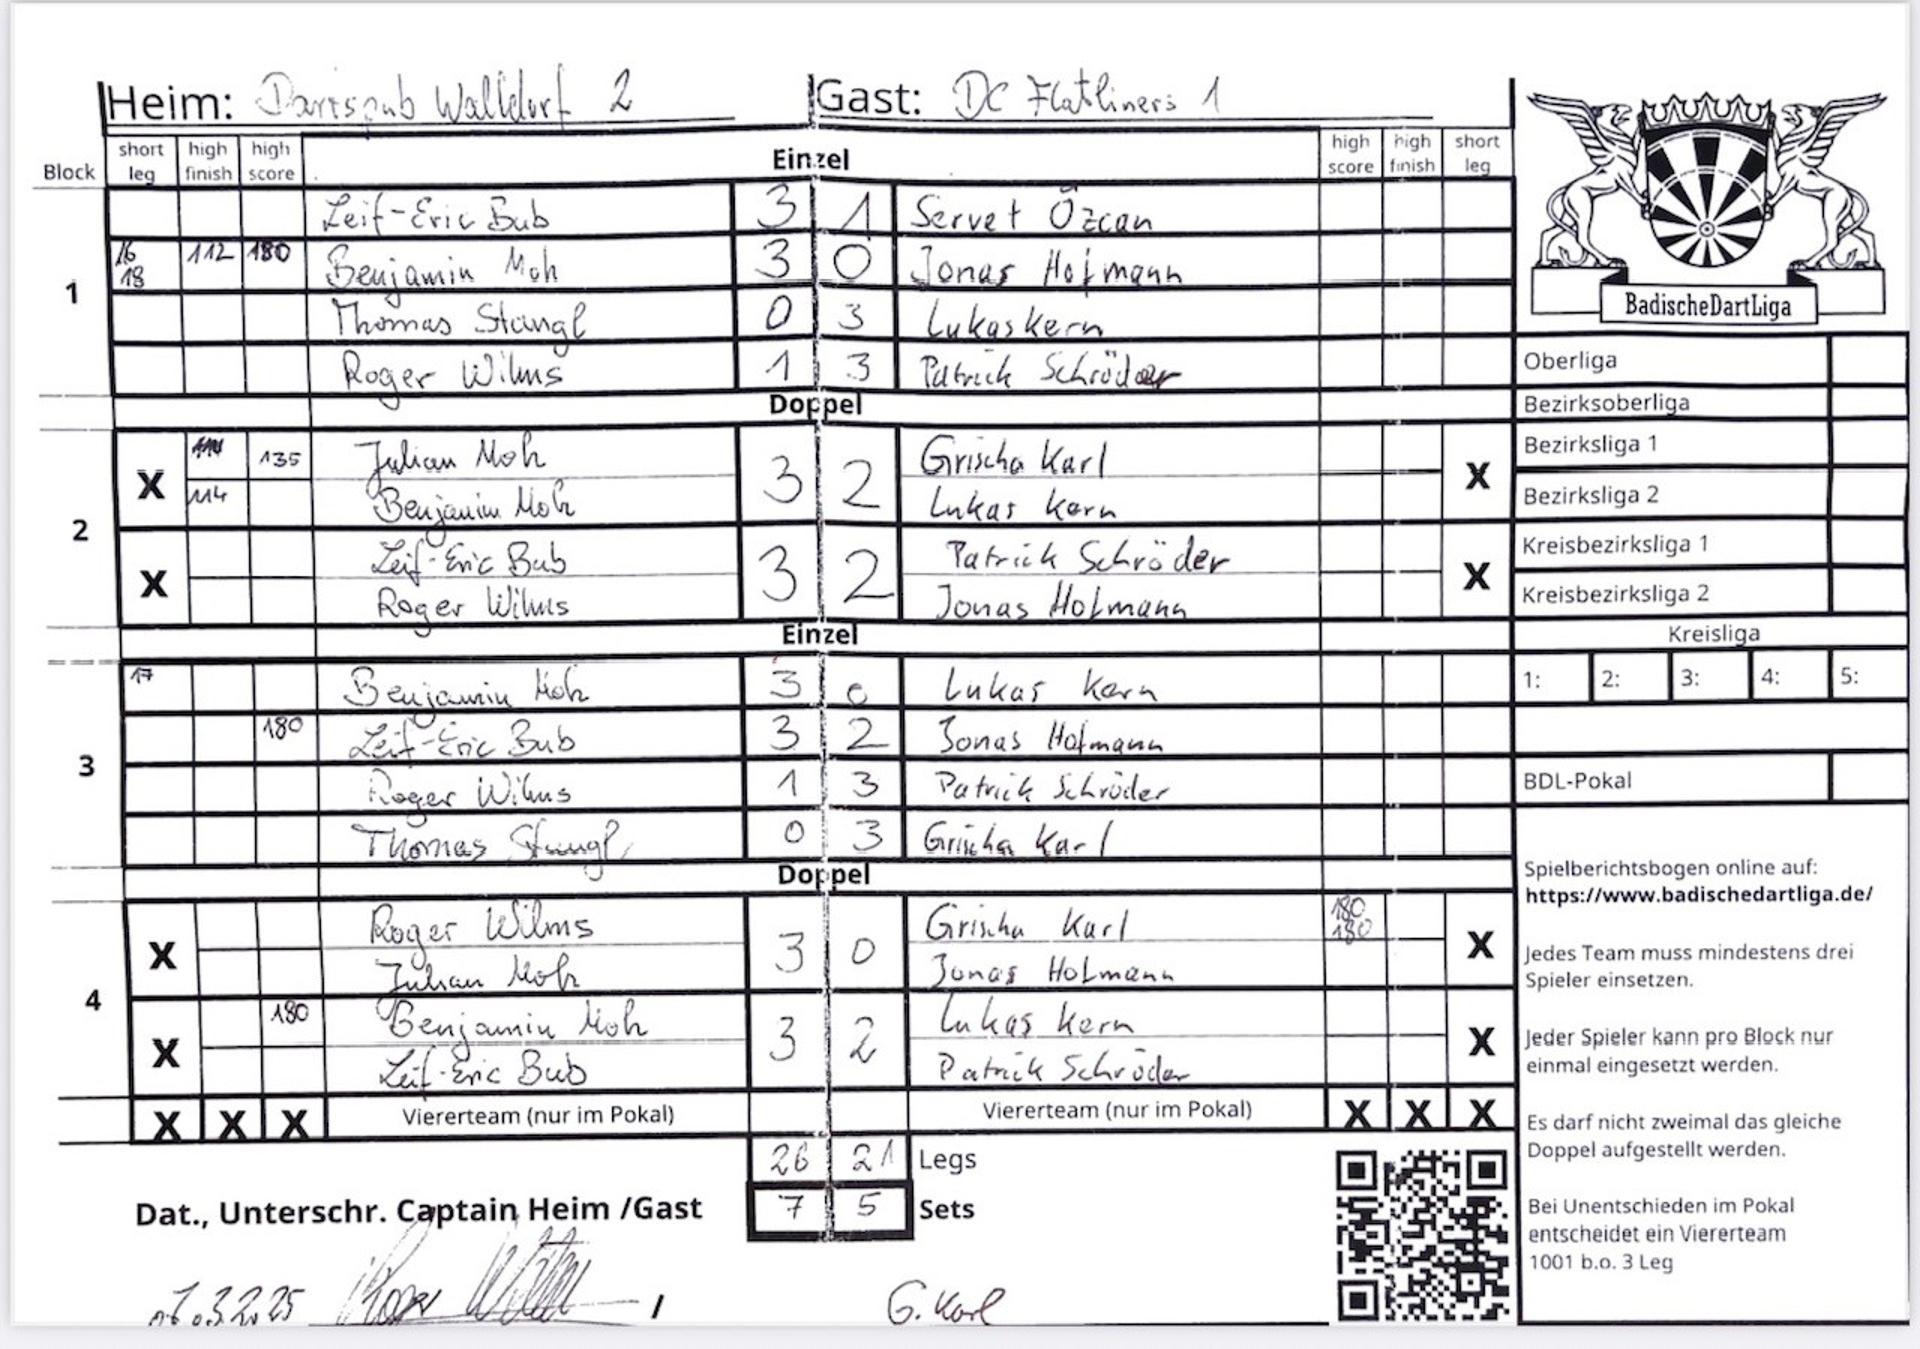 Heim: Dartspub Walldorf 2 Gast: DC Flatliners 1
Block short leg high finish high score Einzel high score high finish short leg
1
Leif-Eric Bub 3 1 Servet Özcan
16 18 112 180 Benjamin Moh 3 0 Jonas Hofmann
Thomas Stangl 0 3 Lukas Kern
Roger Wilms 1 3 Patrick Schröder
Doppel
2
X 135 Julian Moh 3 2 Grischa Karl X
114 Benjamin Moh Lukas Kern
X Leif-Eric Bub 3 2 Patrick Schröder X
Roger Wilms Jonas Hofmann
Einzel
3
17 Benjamin Moh 3 0 Lukas Kern
180 Leif-Eric Bub 3 2 Jonas Hofmann
Roger Wilms 1 3 Patrick Schröder
Thomas Stangl 0 3 Grischa Karl
Doppel
4
X Roger Wilms 3 0 Grischa Karl 180 180 X
Julian Moh Jonas Hofmann
X 180 Benjamin Moh 3 2 Lukas Kern X
Leif-Eric Bub Patrick Schröder
X X X Viererteam (nur im Pokal) Viererteam (nur im Pokal) X X X
26 21 Legs
7 5 Sets
Dat., Unterschr. Captain Heim /Gast
07.03.2025 / G. Karl
BadischeDartLiga
Oberliga
Bezirksoberliga
Bezirksliga 1
Bezirksliga 2
Kreisbezirksliga 1
Kreisbezirksliga 2
Kreisliga
1: 2: 3: 4: 5:
BDL-Pokal
Spielberichtsbogen online auf:
https://www.badischedartliga.de/
Jedes Team muss mindestens drei
Spieler einsetzen.
Jeder Spieler kann pro Block nur
einmal eingesetzt werden.
Es darf nicht zweimal das gleiche
Doppel aufgestellt werden.
Bei Unentschieden im Pokal
entscheidet ein Viererteam
1001 b.o. 3 Leg